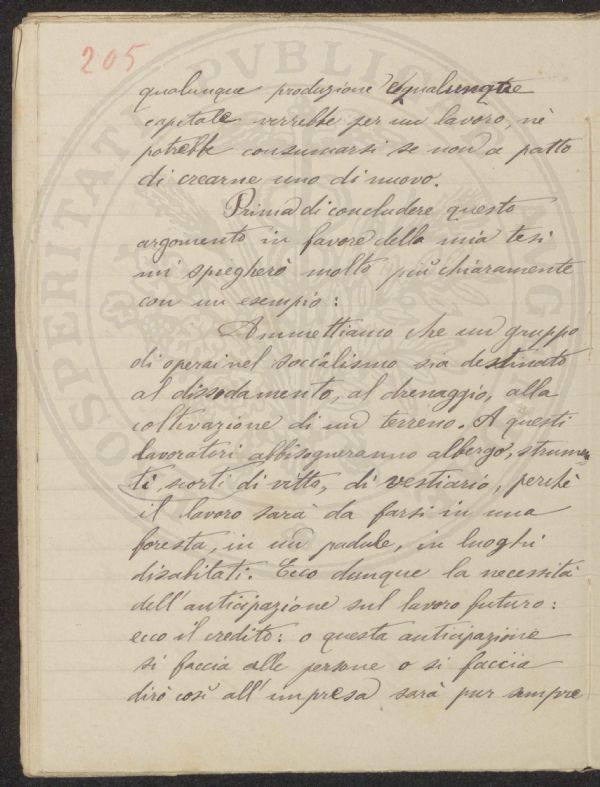 205
qualunque produzione e qualunque
capitale verrebbe per un lavoro, nè
potrebbe consumarsi se non a patto
di crearne uno di nuovo.
Prima di concludere questo
argomento in favore della mia tesi
mi spiegherò molto più chiaramente
con un esempio:
Ammettiamo che un gruppo
di operai nel socialismo sia destinato
al dissodamento, al drenaggio, alla
coltivazione di un terreno. A questi
lavoratori abbisogneranno albergo, strumen
ti, scorti di vitto, di vestiario, perchè
il lavoro sarà da farsi in una
foresta, in un padule, in luoghi
disabitati. Ecco dunque la necessità
dell'anticipazione sul lavoro futuro:
ecco il credito: o questa anticipazione
si faccia alle persone o si faccia
dirò così all'impresa sarà pur sempre